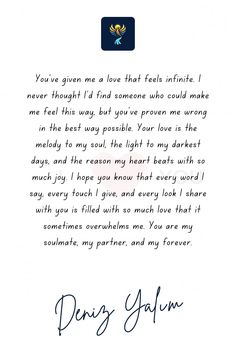 You've given me a love that feels infinite. I
never thought I'd find someone who could make
me feel this way, but you've proven me wrong
in the best way possible. Your love is the
melody to my soul, the light to my darkest
days, and the reason my heart beats with so
much joy. I hope you know that every word I
say, every touch I give, and every look I share
with you is filled with so much love that it
sometimes overwhelms me. You are my
soulmate, my partner, and my forever.
Deniz Yalım